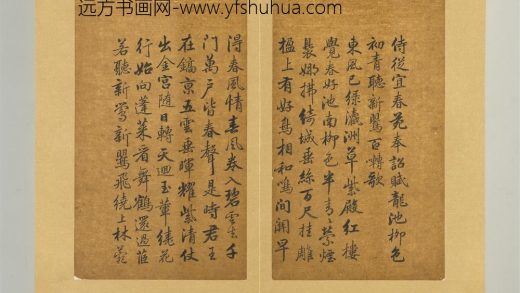 远方书画网-www.yfshuhua.com
侍從宜春苑奉詔賦龍池柳色
初青聽新鶯百囀歌
東風已綠瀛洲草紫殿紅樓
覺春好池南柳色半青縈煙
裊娜拂綺城垂絲百尺挂雕
楹上有好鳥相和鳴間關早
得春風情春風卷入碧雲去千
門萬戶皆春聲是時君王
在鎬京五雲垂暉耀紫清仗
出金宮隨日轉天迴玉輦繞花
行始向蓬萊看舞鶴還過茝
若聽新鶯新鶯飛繞上林苑